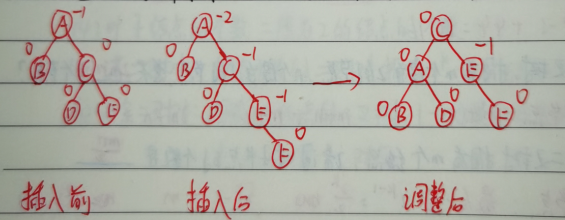 A -1
0 B
0 C
0 D
0 E
A -2
0 B
C -1
0 D
E -1
F 0
0 C
0 A
E -1
0 B
0 D
F 0
插入前
插入后
调整后